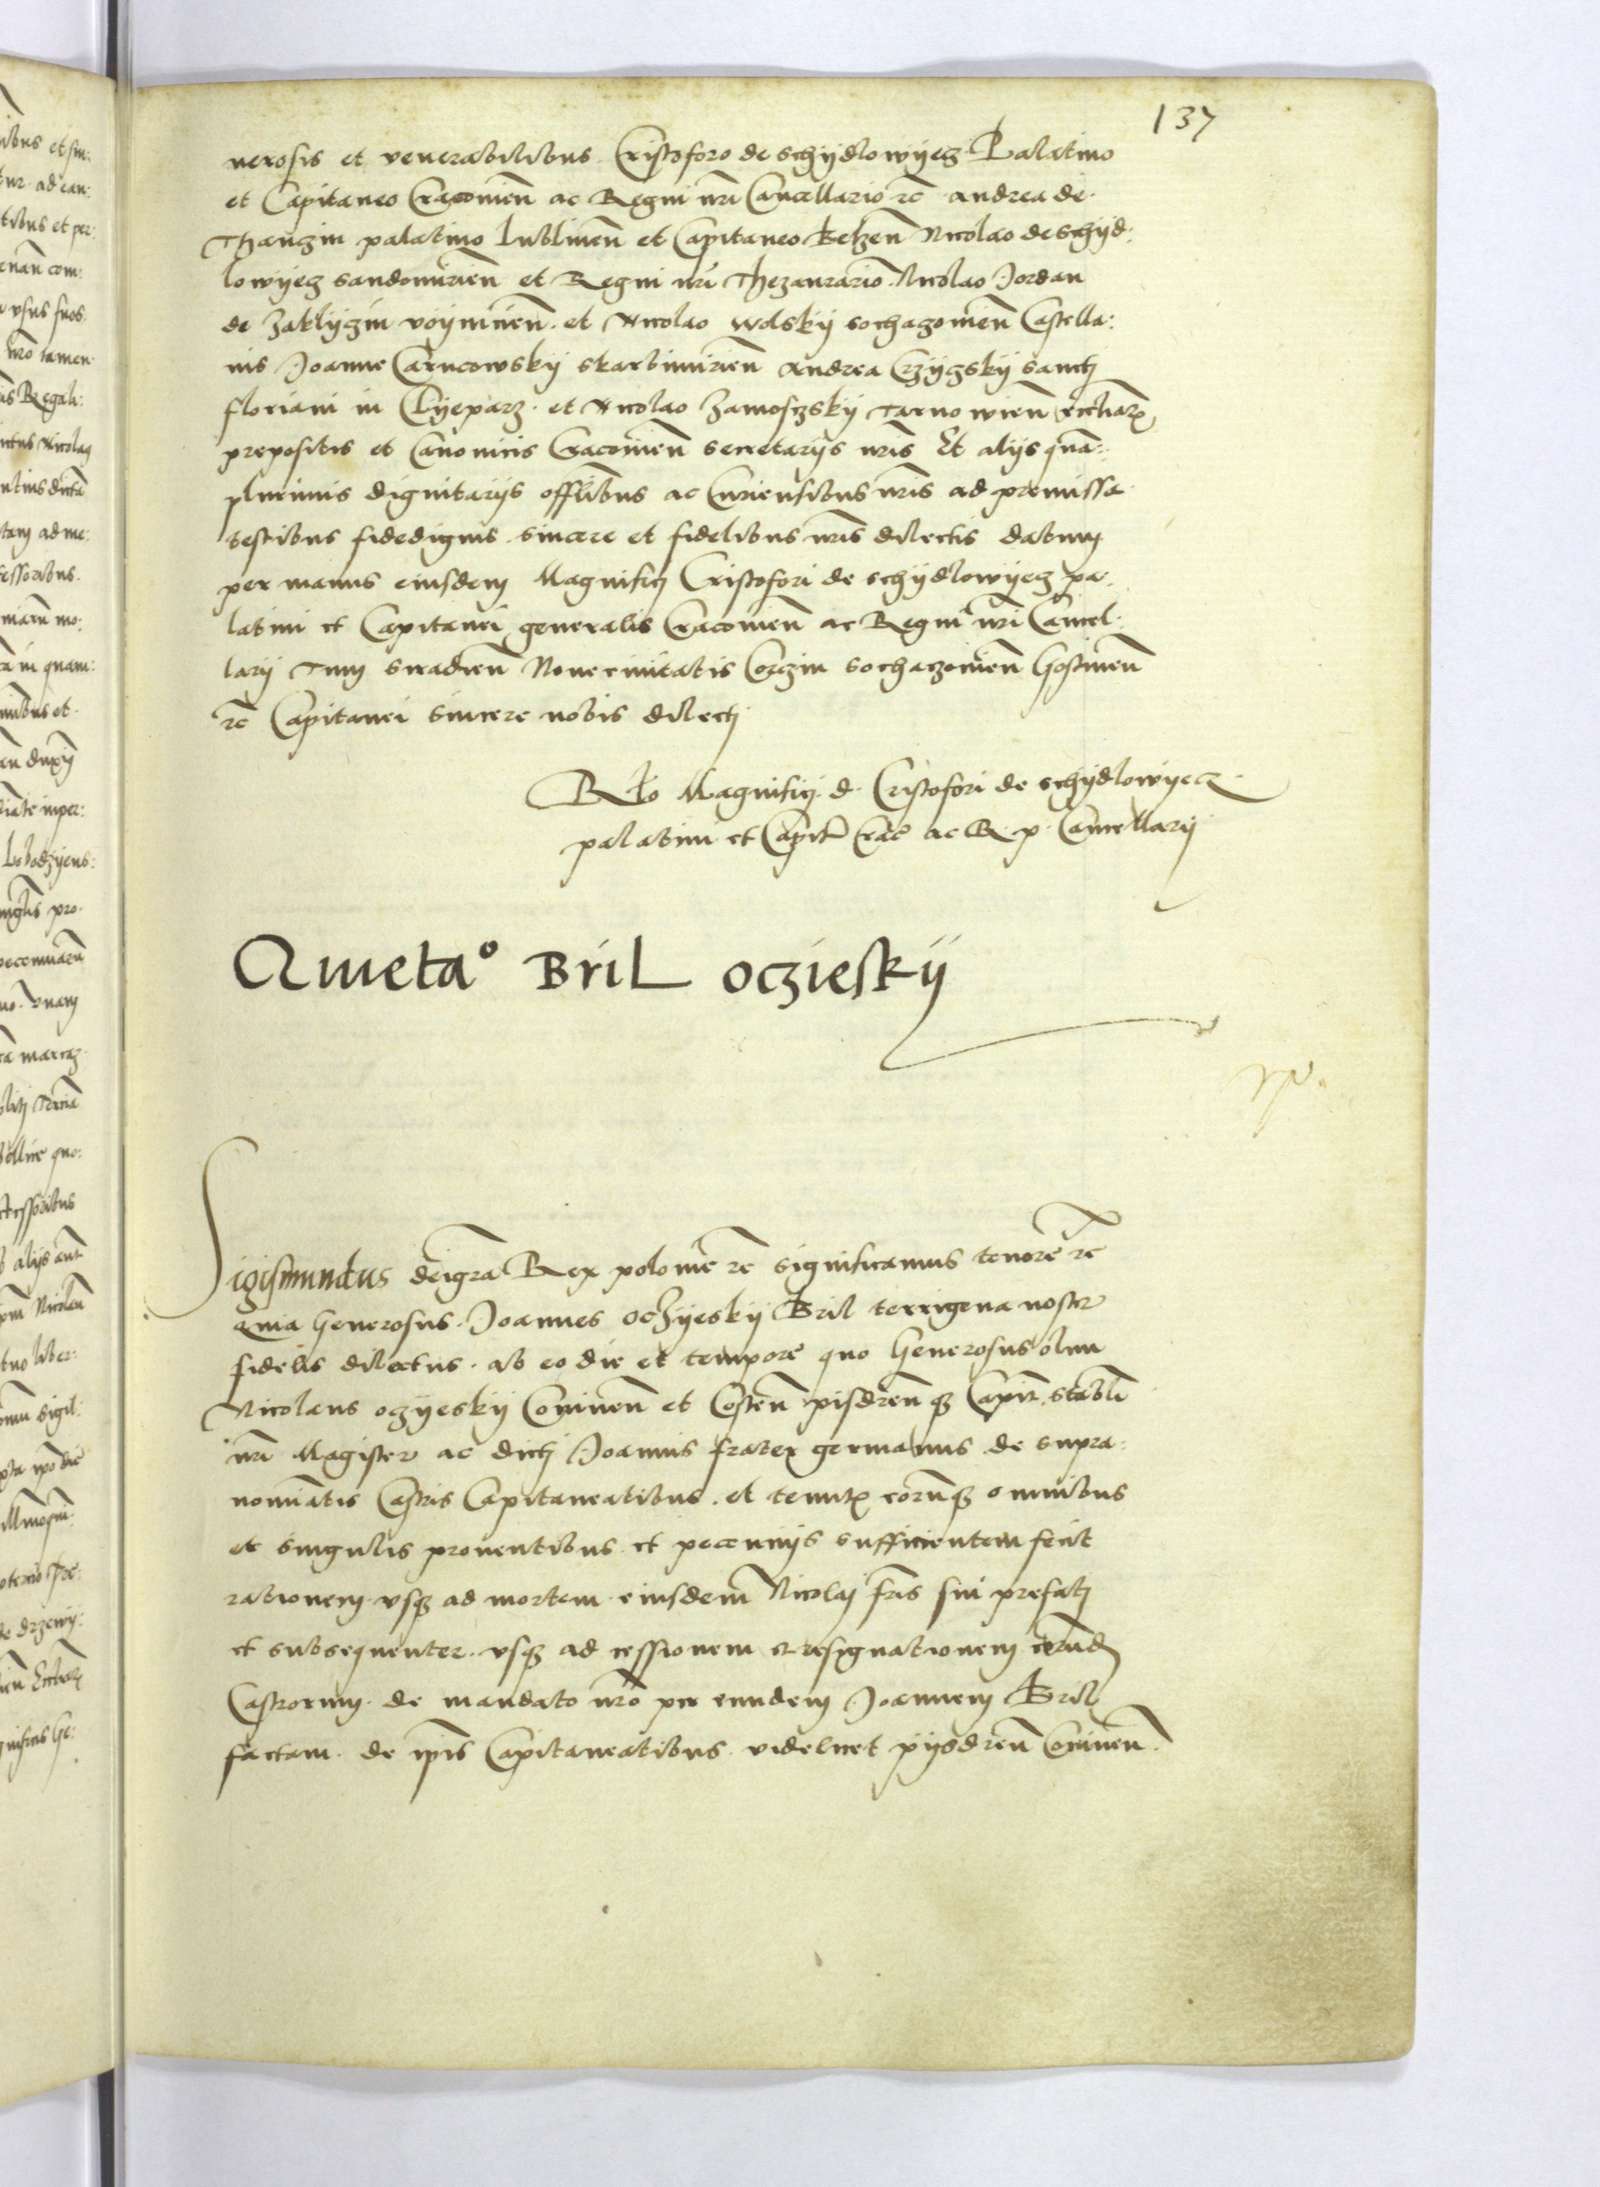 137
nerosis et venerabilibus Cristoforo de Schÿdlowÿecz Palatino
et Capitaneo Cracovieñ ac Regni nr̃i Cancellario rc̃ Andrea de
Thanczin palatino lublineñ et Capitaneo Belzeñ Nicolao de Schÿd:
lowÿecz Sandomirieñ et Regni nr̃i Thezaurario. Nicolao Jordan
de Zaklÿczin voÿniceñ. et Nicolao Wolskÿ Sochaczovieñ Castella:
nis Joanne Carncowskÿ Skarbimirieñ Andrea Crzÿczskÿ Sancti
Floriani in Clÿeparz. et Nicolao Zamosczskÿ Tarnovieñ Ecclaꝝ
prepositis et Canonicis Cracovieñ Secretarÿs nr̃is Et alÿs quã:
plurimis dignitarÿs offl̃ibus ac Curiensibus nr̃is ad premissa
testibus fidedignis. sincere et fidelibus nr̃is dilectis datum
per manus eiusdem Magnifici Cristofori de Schÿdlowÿecz pa:
latini et Capitanei generalis Cracovieñ ac Regni nr̃i Cancel:
larÿ Tum Siradieñ Nove civitatis Corczin Sochaczovieñ Gostineñ
rc̃ Capitanei sincere nobis dilecti
Rl̃o Magnifici d. Cristofori de Schÿdlowÿecz
palatini et Capit̃ Crac̃ ac R. p. Cancellarÿ
Quietaº Bril Oczieskÿ
Sigismundus dei gr̃a Rex polonie rc̃ Significamus tenore rc̃
quia Generosus. Joannes Oczÿeskÿ Bril terrigena noster
fidelis dilectus. ab eo die et tempore quo Generosus olim
Nicolaus Oczÿeskÿ Conineñ et Costeñ pisdreñqꝫ Capit̃. Stabl̃i
nr̃i Magister ac dicti Joannis frater germanus de supra:
nominatis Castris Capitaneatibus. et tenut̃ eorũqꝫ omnibus
et singulis proventibus et pecunÿs sufficientem fecit
rationem usqꝫ ad mortem eiusdem Nicolai fr̃is sui prefati
et subsequenter. usqꝫ ad cessionem et resignationem eorund̃
Castrorum. de mandato nr̃o per eundem Joannem Bril
factam. de ip̃is Capitaneatibus videlicet pÿsdreñ Conineñ.